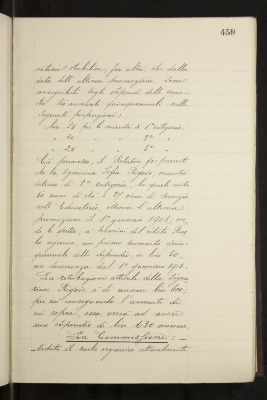 459
natorio stabilisce, fra altro, che dalla
data dell'ultima promozione sono
conseguibili sugli stipendi delle mae-
stre tre aumenti quinquennali nelle
seguenti proporzioni:
Lire 25 per le maestre di 1ª categoria
" 20 " " 2ª "
" 25 " " 3ª "
Ciò premesso, il Relatore fa presente
che la Signorina Sofia Rigois, maestra
interna di 2ª categoria, la quale conta
30 anni di età e 2½ circa di servizio
nell'Educatorio, ottenne l'ultima
promozione il 1º gennaio 1903; on-
de le spetta, a termini del citato Ruo-
lo organico, un primo aumento quin-
quennale dello stipendio, in lire 30,
con decorrenza dal 1º gennaio 1908.
La retribuzione attuale della Signo-
rina Rigois è di annue lire 600;
per cui conseguendo l'aumento di
cui sopra, essa verrà ad avere
uno stipendio di lire 630 annue.
La Commissione: -
Veduto il ruolo organico attualmente